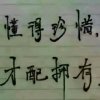 懂得珍惜，
才配拥有